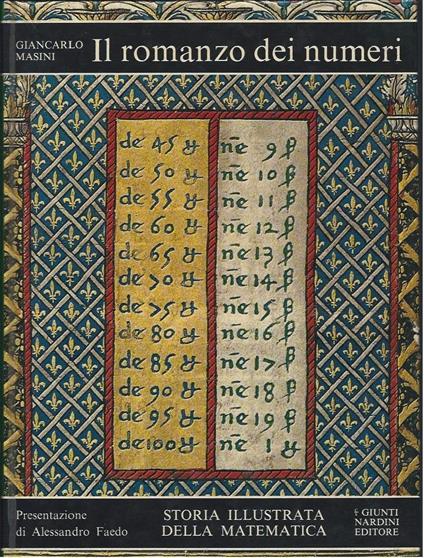 GIANCARLO
MASINI
Il romanzo dei numeri
de 45
de 50
de 55
de 60
de 65
de 70
de 75
de 80
de 85
de 90
de 95
de 100
n̄e 9
n̄e 10
n̄e 11
n̄e 12
n̄e 13
n̄e 14
n̄e 15
n̄e 16
n̄e 17
n̄e 18
n̄e 19
n̄e 1
Presentazione
di Alessandro Faedo
STORIA ILLUSTRATA
DELLA MATEMATICA
GIUNTI
NARDINI
EDITORE